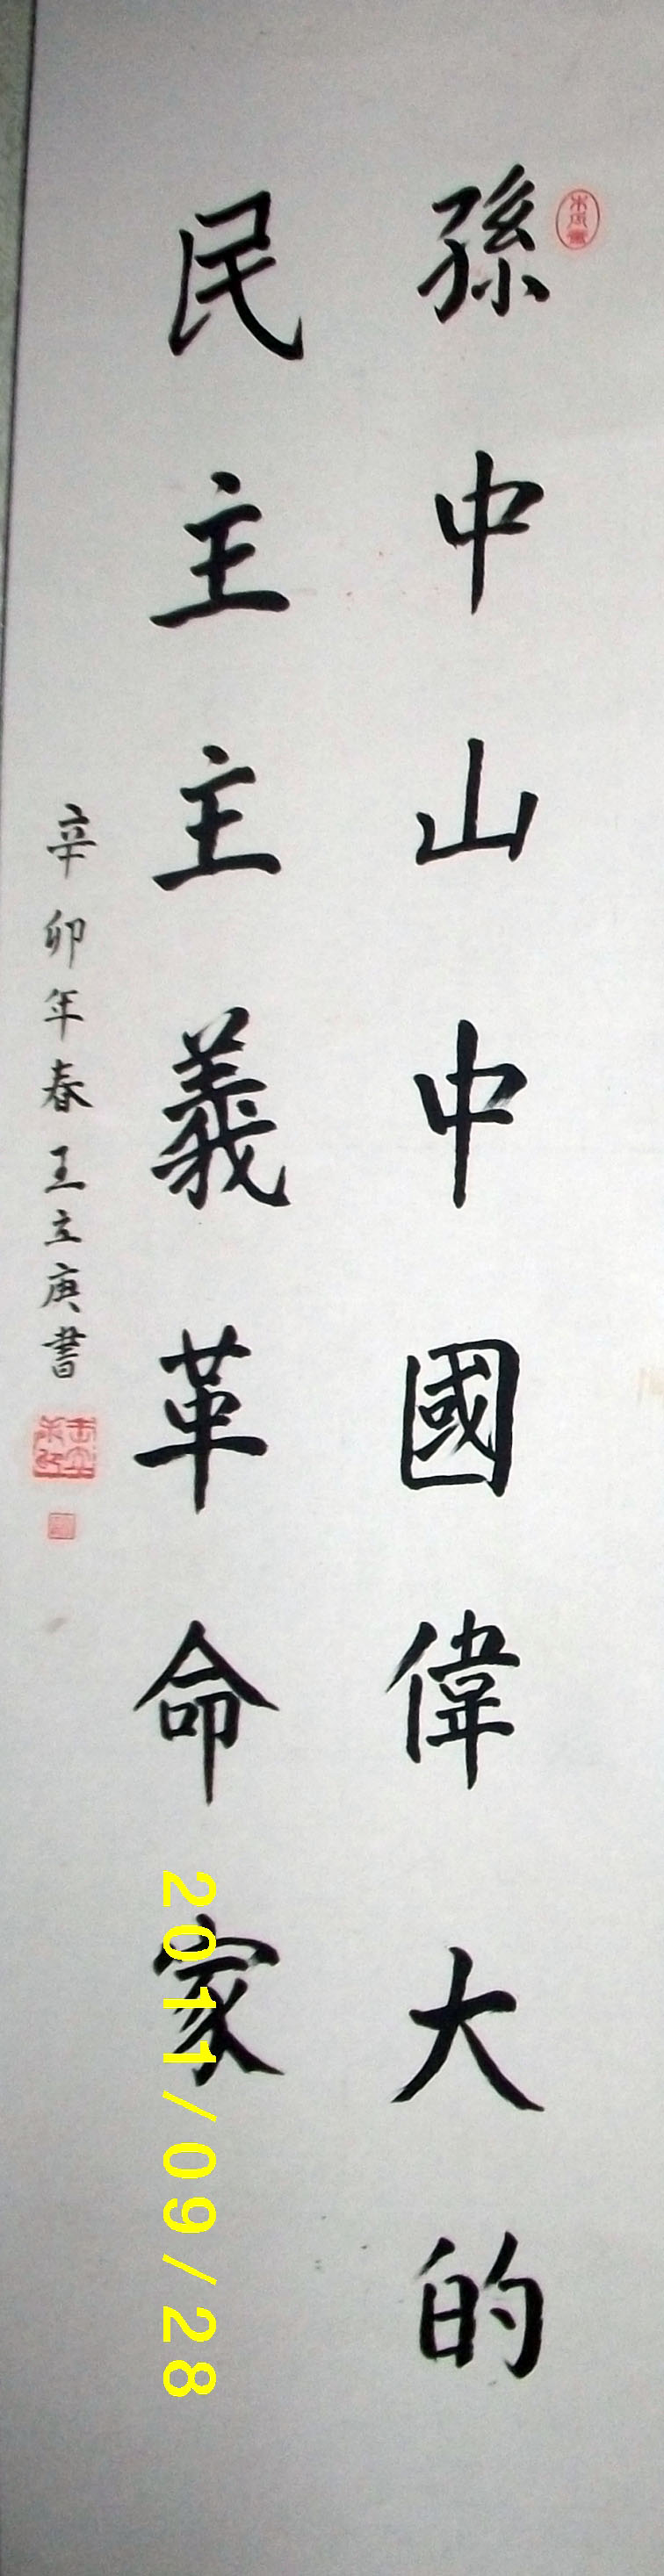 孫中山中國偉大的
民主主義革命家
辛卯年春王立庚書
2011/09/28